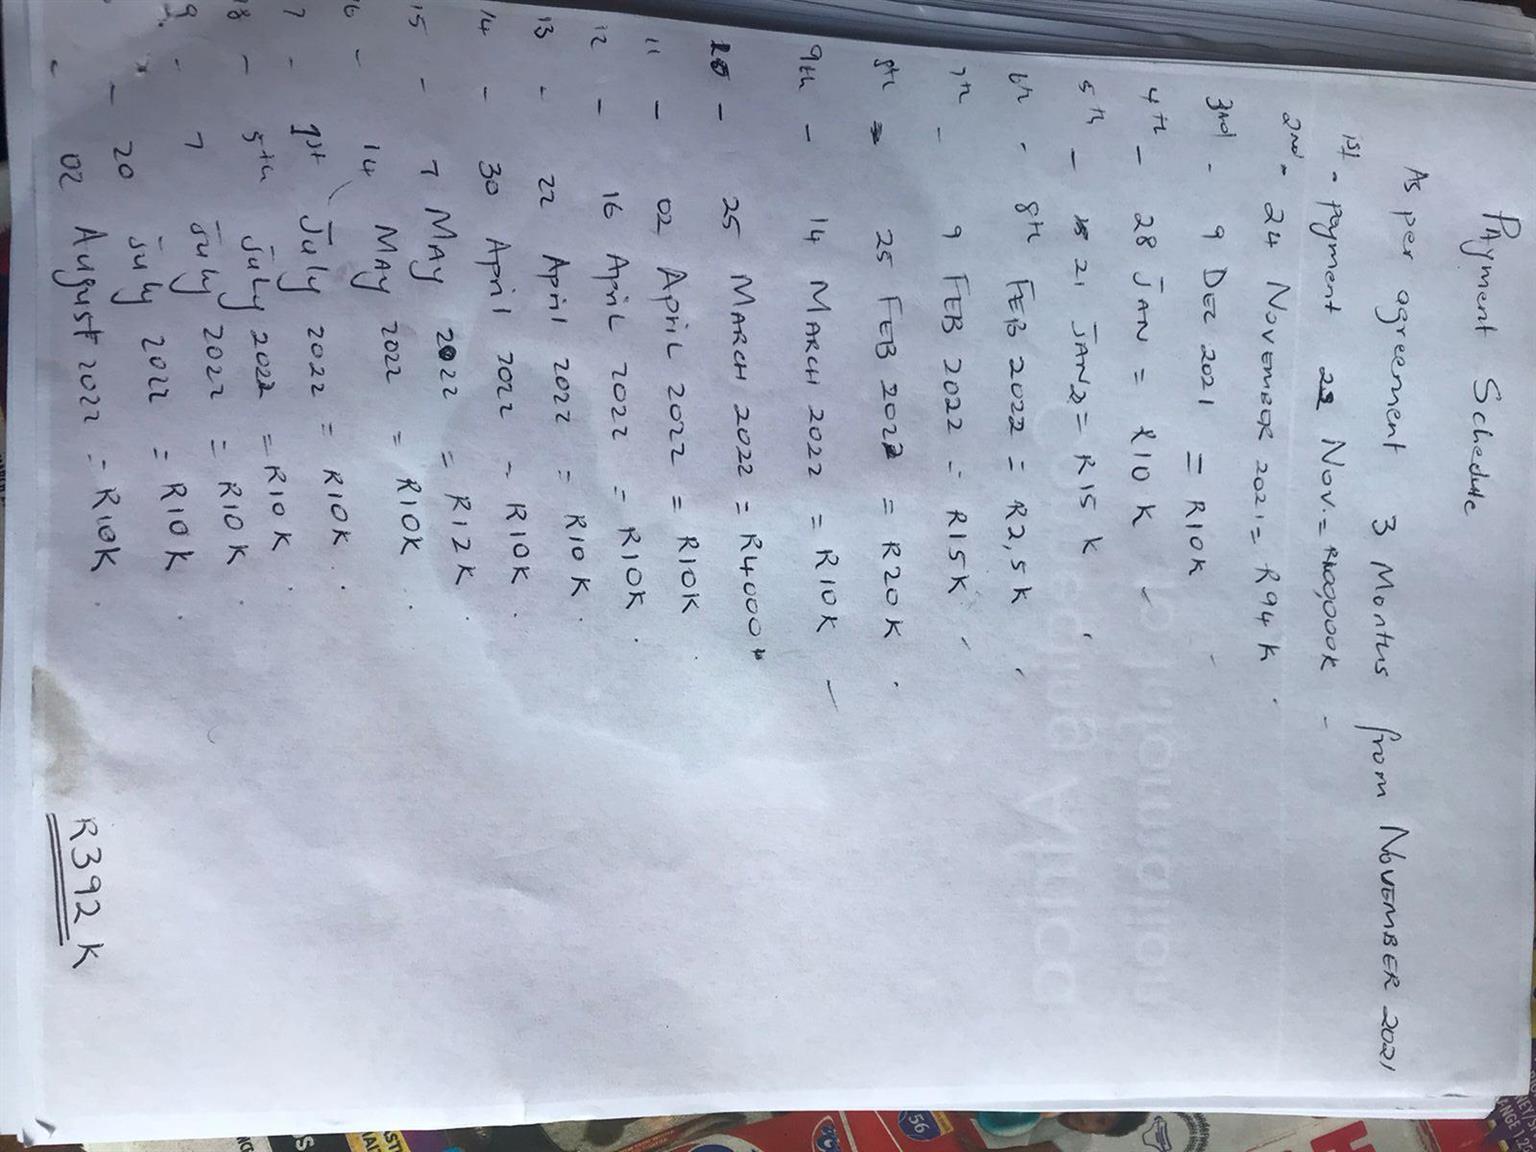 Payment Schedule
As per agreement 3 Months from NOVEMBER 2021
1st - payment 23 Nov. = R100,000K -
2nd - 24 NOVEMBER 2021 = R94 K .
3rd - 9 DEC 2021 = R10K
4th - 28 JAN = R10 K
5th - 21 JAN 2 = R15 K
6th - 8th FEB 2022 = R2,5K
7th - 9 FEB 2022 = R15K
8th - 25 FEB 2022 = R20K .
9th - 14 MARCH 2022 = R10K
10 - 25 MARCH 2022 = R4000
11 - 02 APRIL 2022 = R10K
12 - 16 APRIL 2022 = R10K .
13 - 22 April 2022 = R10K .
14 - 30 April 2022 - R10K .
15 - 7 MAY 2022 = R12K .
16 - 14 MAY 2022 = R10K .
7 - 1st July 2022 = R10K .
18 - 5th July 2022 = R10K .
9 - 7 July 2022 = R10K .
- 20 July 2022 = R10K .
- 02 August 2022 = R10K .
R392 K